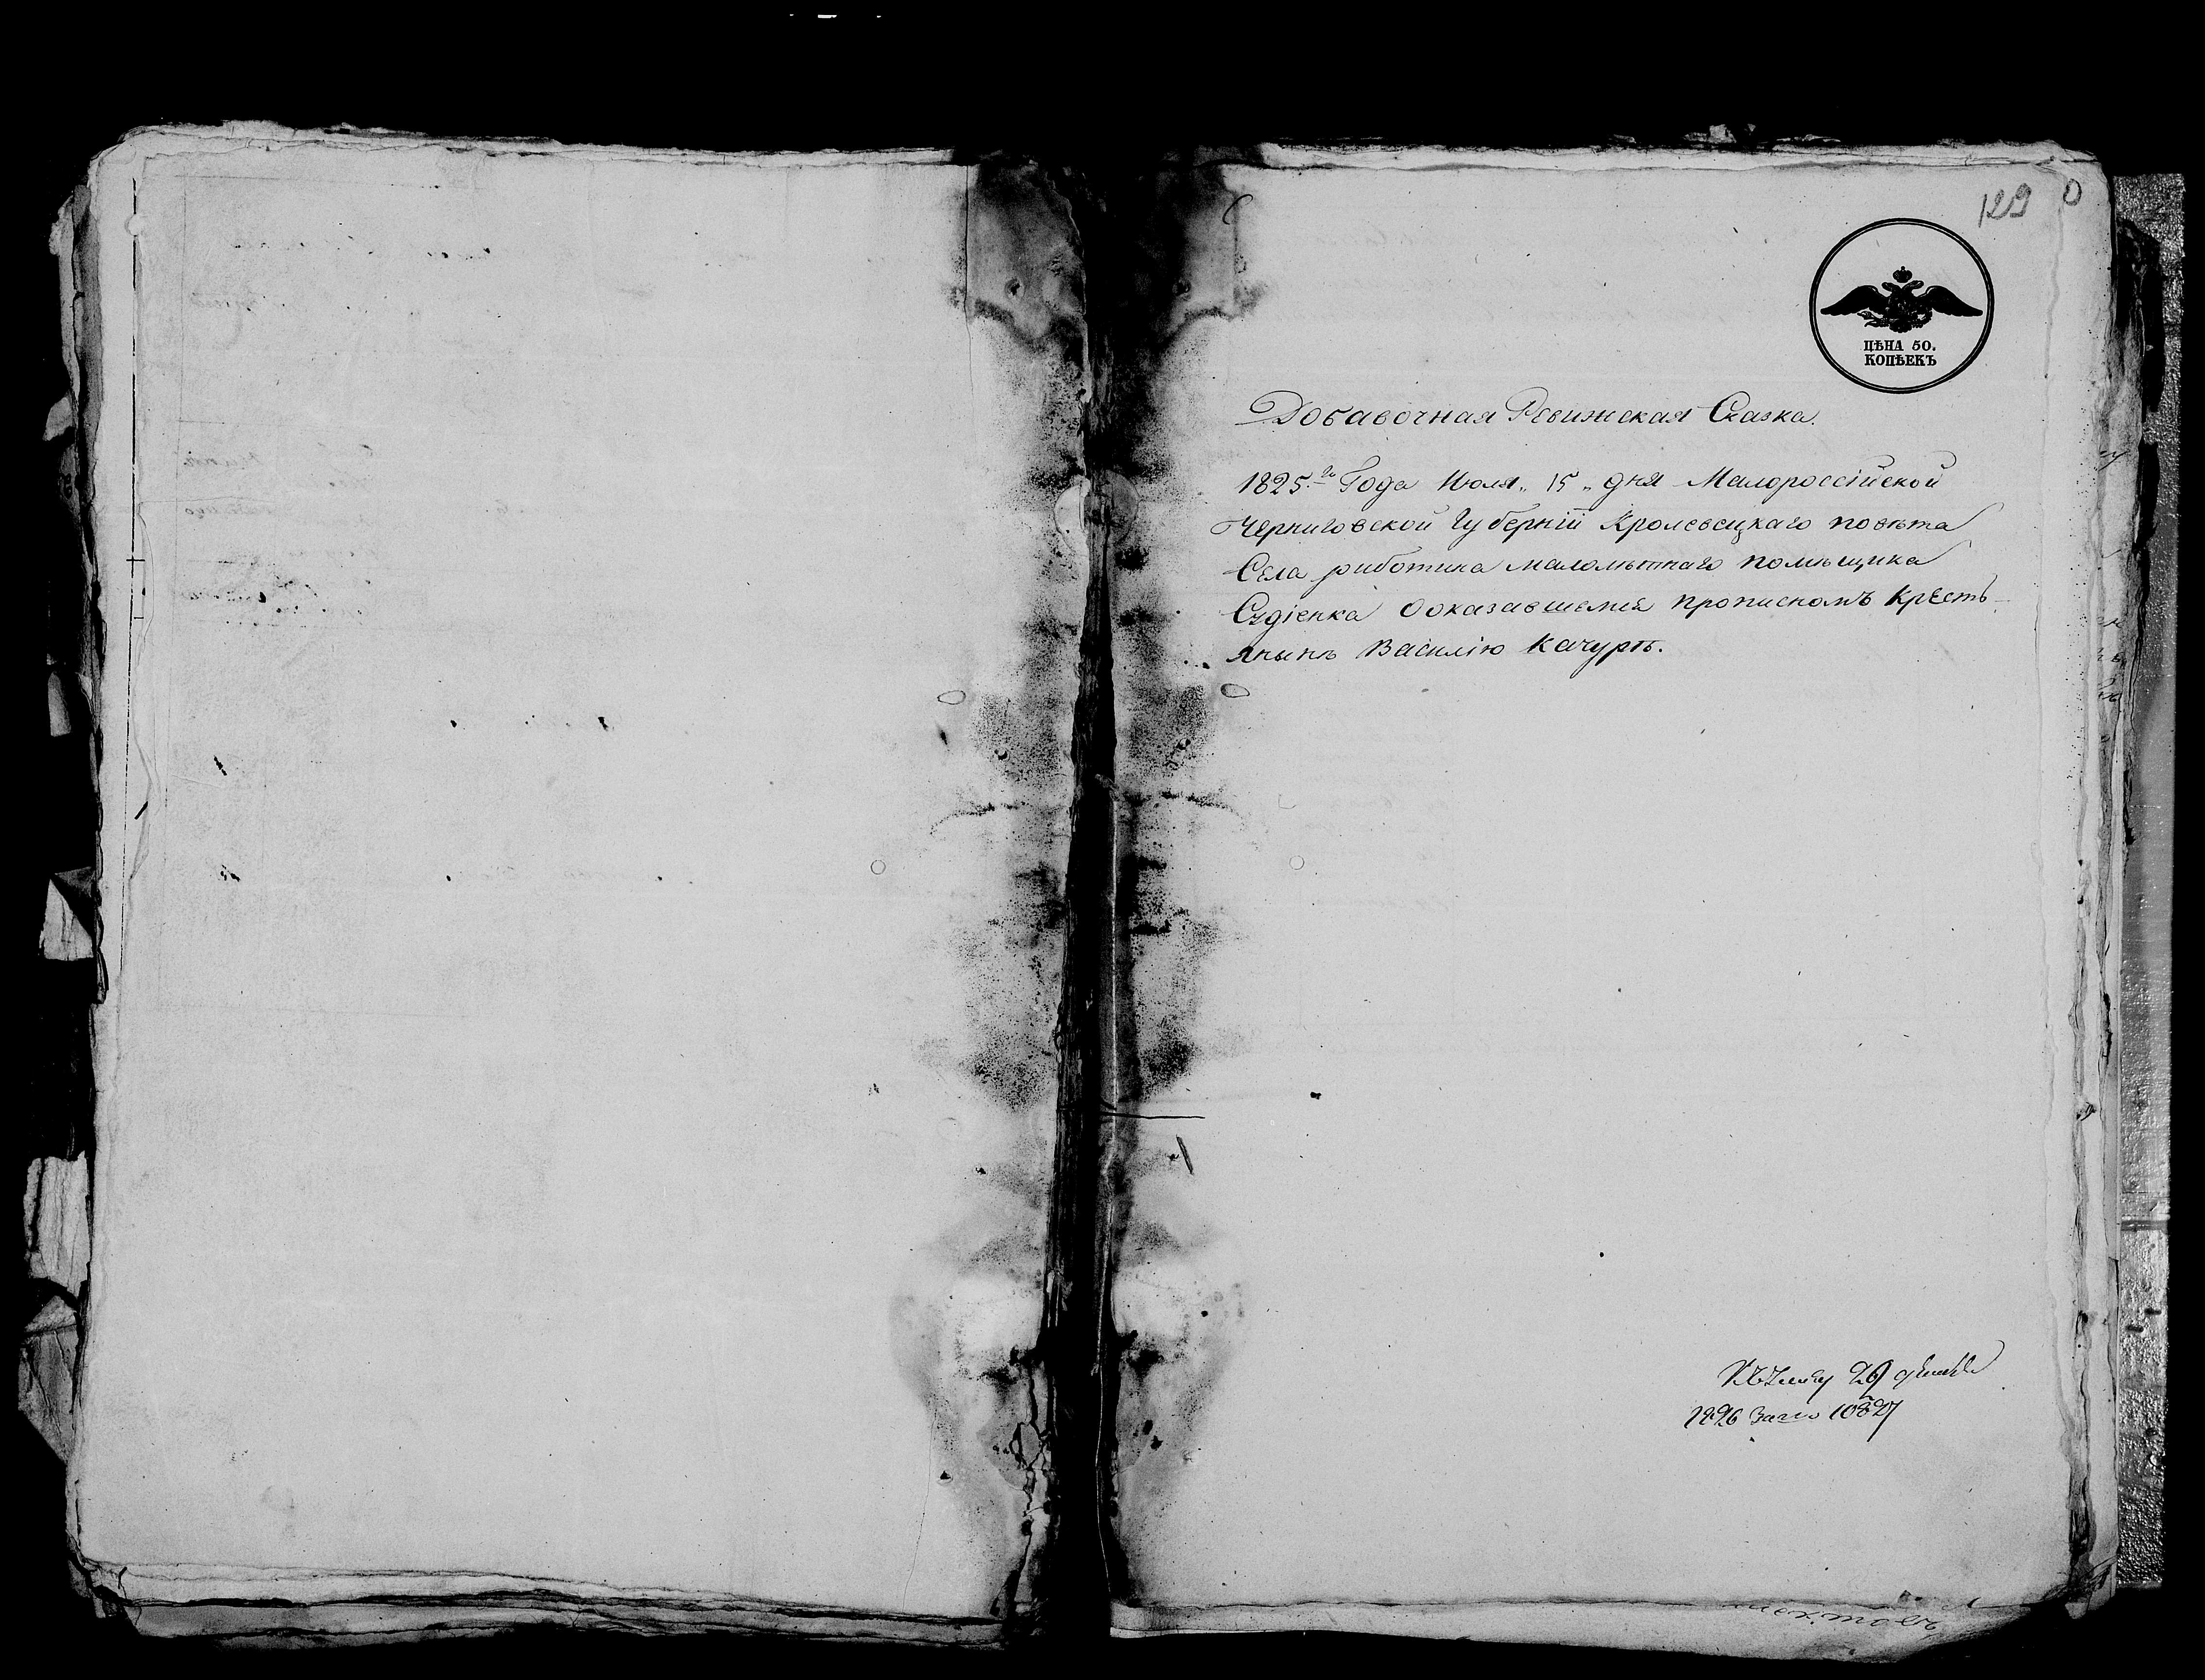 129
ЦѢНА 50.
КОПѢЕКЪ
Добавочная Ревижская Сказка.
1825.го Года Июля „ 15 „ дня Малороссійской
Черниговской Губерніи Кролевецкаго повѣта
Села риботина малолѣтнаго помѣщика
Судіенка Ооказавшемся прописномъ Кресть-
янынѣ Василію Качурѣ.
29
1826